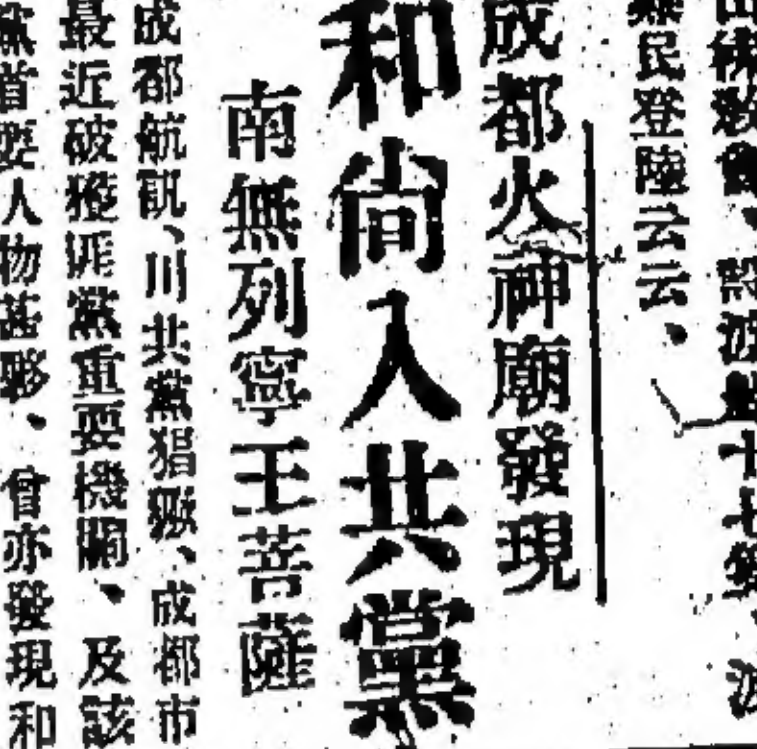 難民登陸云云、
成都火神廟發現
和尚入共黨
南無列寧王菩薩
成都航訊、川共黨猖獗、成都市
最近破獲匪黨重要機關、及該
黨首要人物甚夥、曾亦發現和